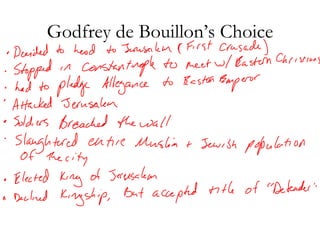 Godfrey de Bouillon's Choice
• Decided to head to Jerusalem (First Crusade)
• Stopped in Constantinople to meet w/ Eastern Christians
• had to pledge Allegance to Eastern Emperor
• Attacked Jerusalem
• Soldiers Breached the wall
• Slaughtered entire Muslim + Jewish population
of the city
• Elected King of Jerusalem
• Declined Kingship, but accepted title of "Defender"